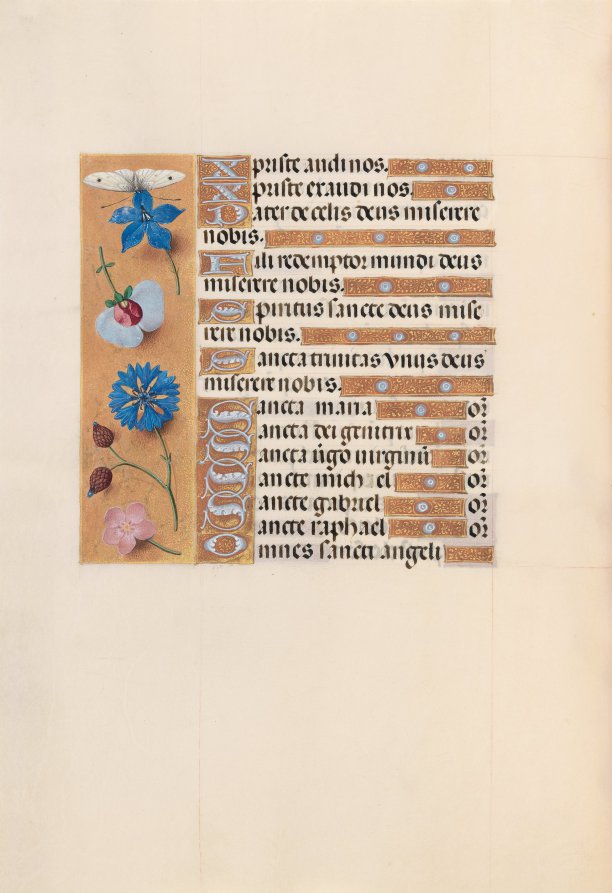 Xpriste audi nos.
Xpriste exaudi nos.
Pater de celis deus miserere
nobis.
Fili redemptor mundi deus
miserere nobis.
Spiritus sancte deus mise
rere nobis.
Sancta trinitas vnus deus
miserere nobis.
Sancta maria or
Sancta dei genitrix or
Sancta u̅go virginu̅ or
Sancte michael or
Sancte gabriel or
Sancte raphael or
Omnes sancti angeli